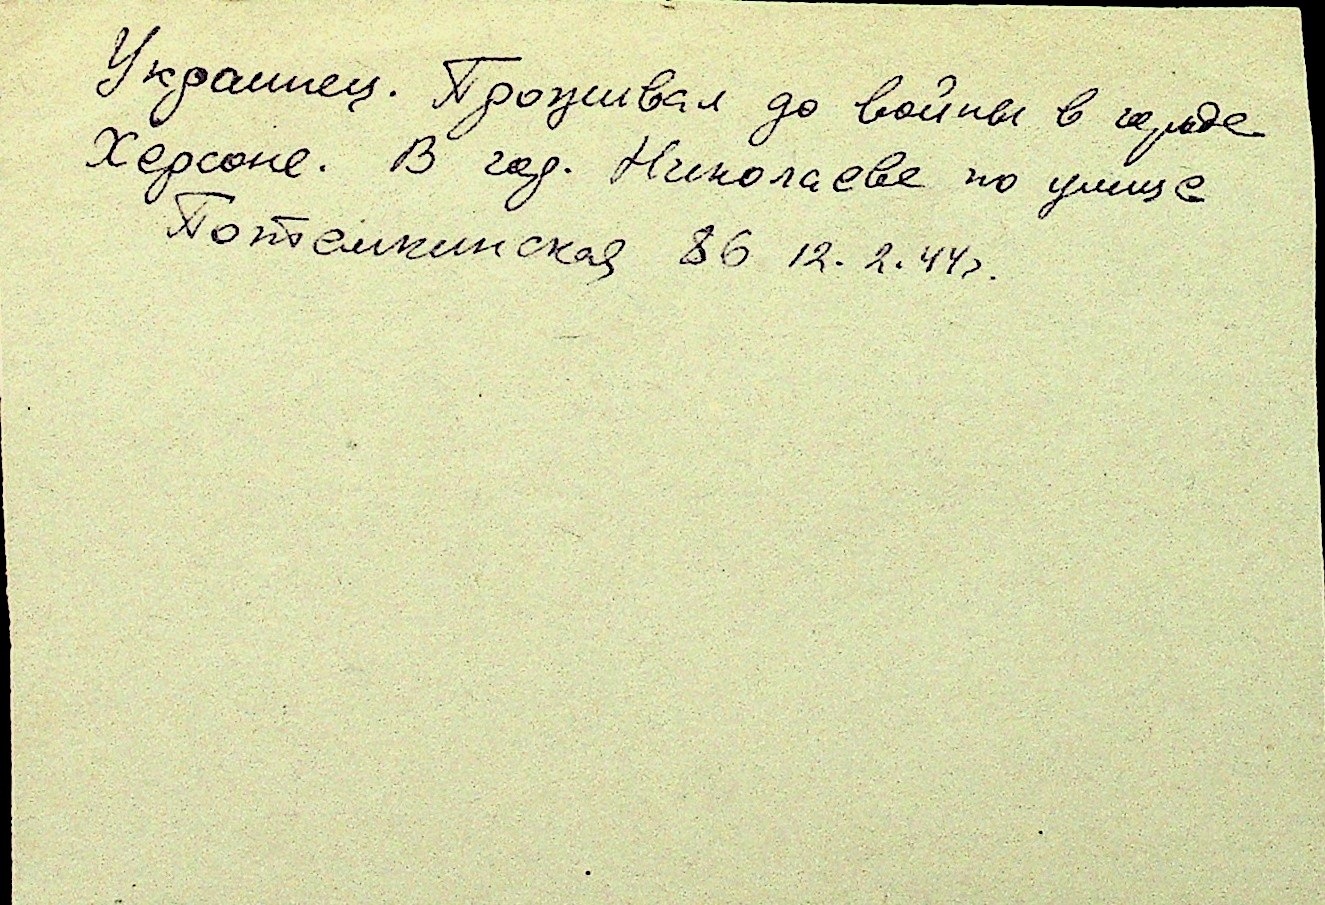 Украинец. Проживал до войны в городе
Херсоне. В гор. Николаеве по улице
Потемкинская 86 12.2.44г.